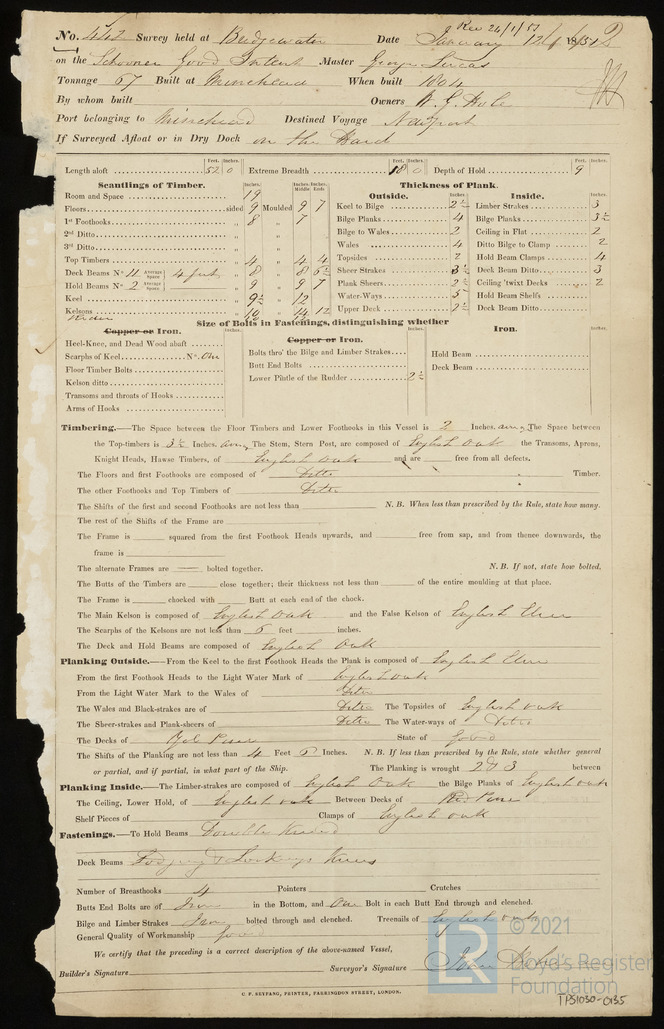 Rec 24/1/51
No. 442 Survey held at Bridgewater Date January 12th 1851
on the Schooner Good Intent Master George Lucas
Tonnage 67 Built at Minehead When built 1804
By whom built Owners W. G. Hole
Port belonging to Minehead Destined Voyage Newport
If Surveyed Afloat or in Dry Dock on the Hard
Feet. Inches. Feet. Inches. Feet. Inches.
Length aloft 52 0 Extreme Breadth 18 0 Depth of Hold 9
Scantlings of Timber.
Room and Space 19
Floors sided 9 Moulded 9 7
1st Foothooks „ 8 „ 7
2nd Ditto „ „
3rd Ditto „ „
Top Timbers „ 4 „ 4 4
Deck Beams No. 11 Average Space 4 feet „ 8 „ 8 6½
Hold Beams No. 2 Average Space „ 9 „ 9 7
Keel „ 9½ „ 12
Kelsons „ 10 „ 14 12
Thickness of Plank.
Outside.
Keel to Bilge 2½
Bilge Planks 4
Bilge to Wales 2
Wales 4
Topsides 2
Sheer Strakes 3½
Plank Sheers 2½
Water-Ways 5
Upper Deck 2½
Inside.
Limber Strakes 3
Bilge Planks 3½
Ceiling in Flat 2
Ditto Bilge to Clamp 2
Hold Beam Clamps 4
Deck Beam Ditto 3
Ceiling 'twixt Decks 2
Hold Beam Shelfs
Deck Beam Ditto
Size of Bolts in Fastenings, distinguishing whether
Copper or Iron.
Heel-Knee, and Dead Wood abaft
Scarphs of Keel No. One
Floor Timber Bolts
Kelson ditto
Transoms and throats of Hooks
Arms of Hooks
Copper or Iron.
Bolts thro' the Bilge and Limber Strakes
Butt End Bolts
Lower Pintle of the Rudder 2½
Iron.
Hold Beam
Deck Beam
Timbering.—The Space between the Floor Timbers and Lower Foothooks in this Vessel is 2 Inches. The Space between
the Top-timbers is 3½ Inches. The Stem, Stern Post, are composed of English Oak the Transoms, Aprons,
Knight Heads, Hawse Timbers, of English oak and are free from all defects.
The Floors and first Foothooks are composed of Ditto Timber.
The other Foothooks and Top Timbers of Ditto
The Shifts of the first and second Foothooks are not less than N. B. When less than prescribed by the Rule, state how many.
The rest of the Shifts of the Frame are
The Frame is squared from the first Foothook Heads upwards, and free from sap, and from thence downwards, the
frame is
The alternate Frames are bolted together. N. B. If not, state how bolted.
The Butts of the Timbers are close together; their thickness not less than of the entire moulding at that place.
The Frame is chocked with Butt at each end of the chock.
The Main Kelson is composed of English Oak and the False Kelson of English Elm
The Scarphs of the Kelsons are not less than 5 feet inches.
The Deck and Hold Beams are composed of English Oak
Planking Outside.—From the Keel to the first Foothook Heads the Plank is composed of English Elm
From the first Foothook Heads to the Light Water Mark of English oak
From the Light Water Mark to the Wales of Ditto
The Wales and Black-strakes are of Ditto The Topsides of English oak
The Sheer-strakes and Plank-sheers of Ditto The Water-ways of Ditto
The Decks of Yel Pine State of Good
The Shifts of the Planking are not less than 4 Feet 6 Inches. N. B. If less than prescribed by the Rule, state whether general
or partial, and if partial, in what part of the Ship. The Planking is wrought 2 & 3 between
Planking Inside.—The Limber-strakes are composed of English Oak the Bilge Planks of English oak
The Ceiling, Lower Hold, of English oak Between Decks of Red Pine
Shelf Pieces of Clamps of English oak
Fastenings.—To Hold Beams Double Kneed
Deck Beams Lodging & Knees
Number of Breasthooks 4 Pointers Crutches
Butts End Bolts are of Iron in the Bottom, and One Bolt in each Butt End through and clenched.
Bilge and Limber Strakes Iron bolted through and clenched. Treenails of English oak
General Quality of Workmanship good
We certify that the preceding is a correct description of the above-named Vessel,
Builder's Signature Surveyor's Signature John
C. F. SEYFANG, PRINTER, FARRINGDON STREET, LONDON.
© 2021
LR
Lloyd's Register
Foundation
TPS1030-0135